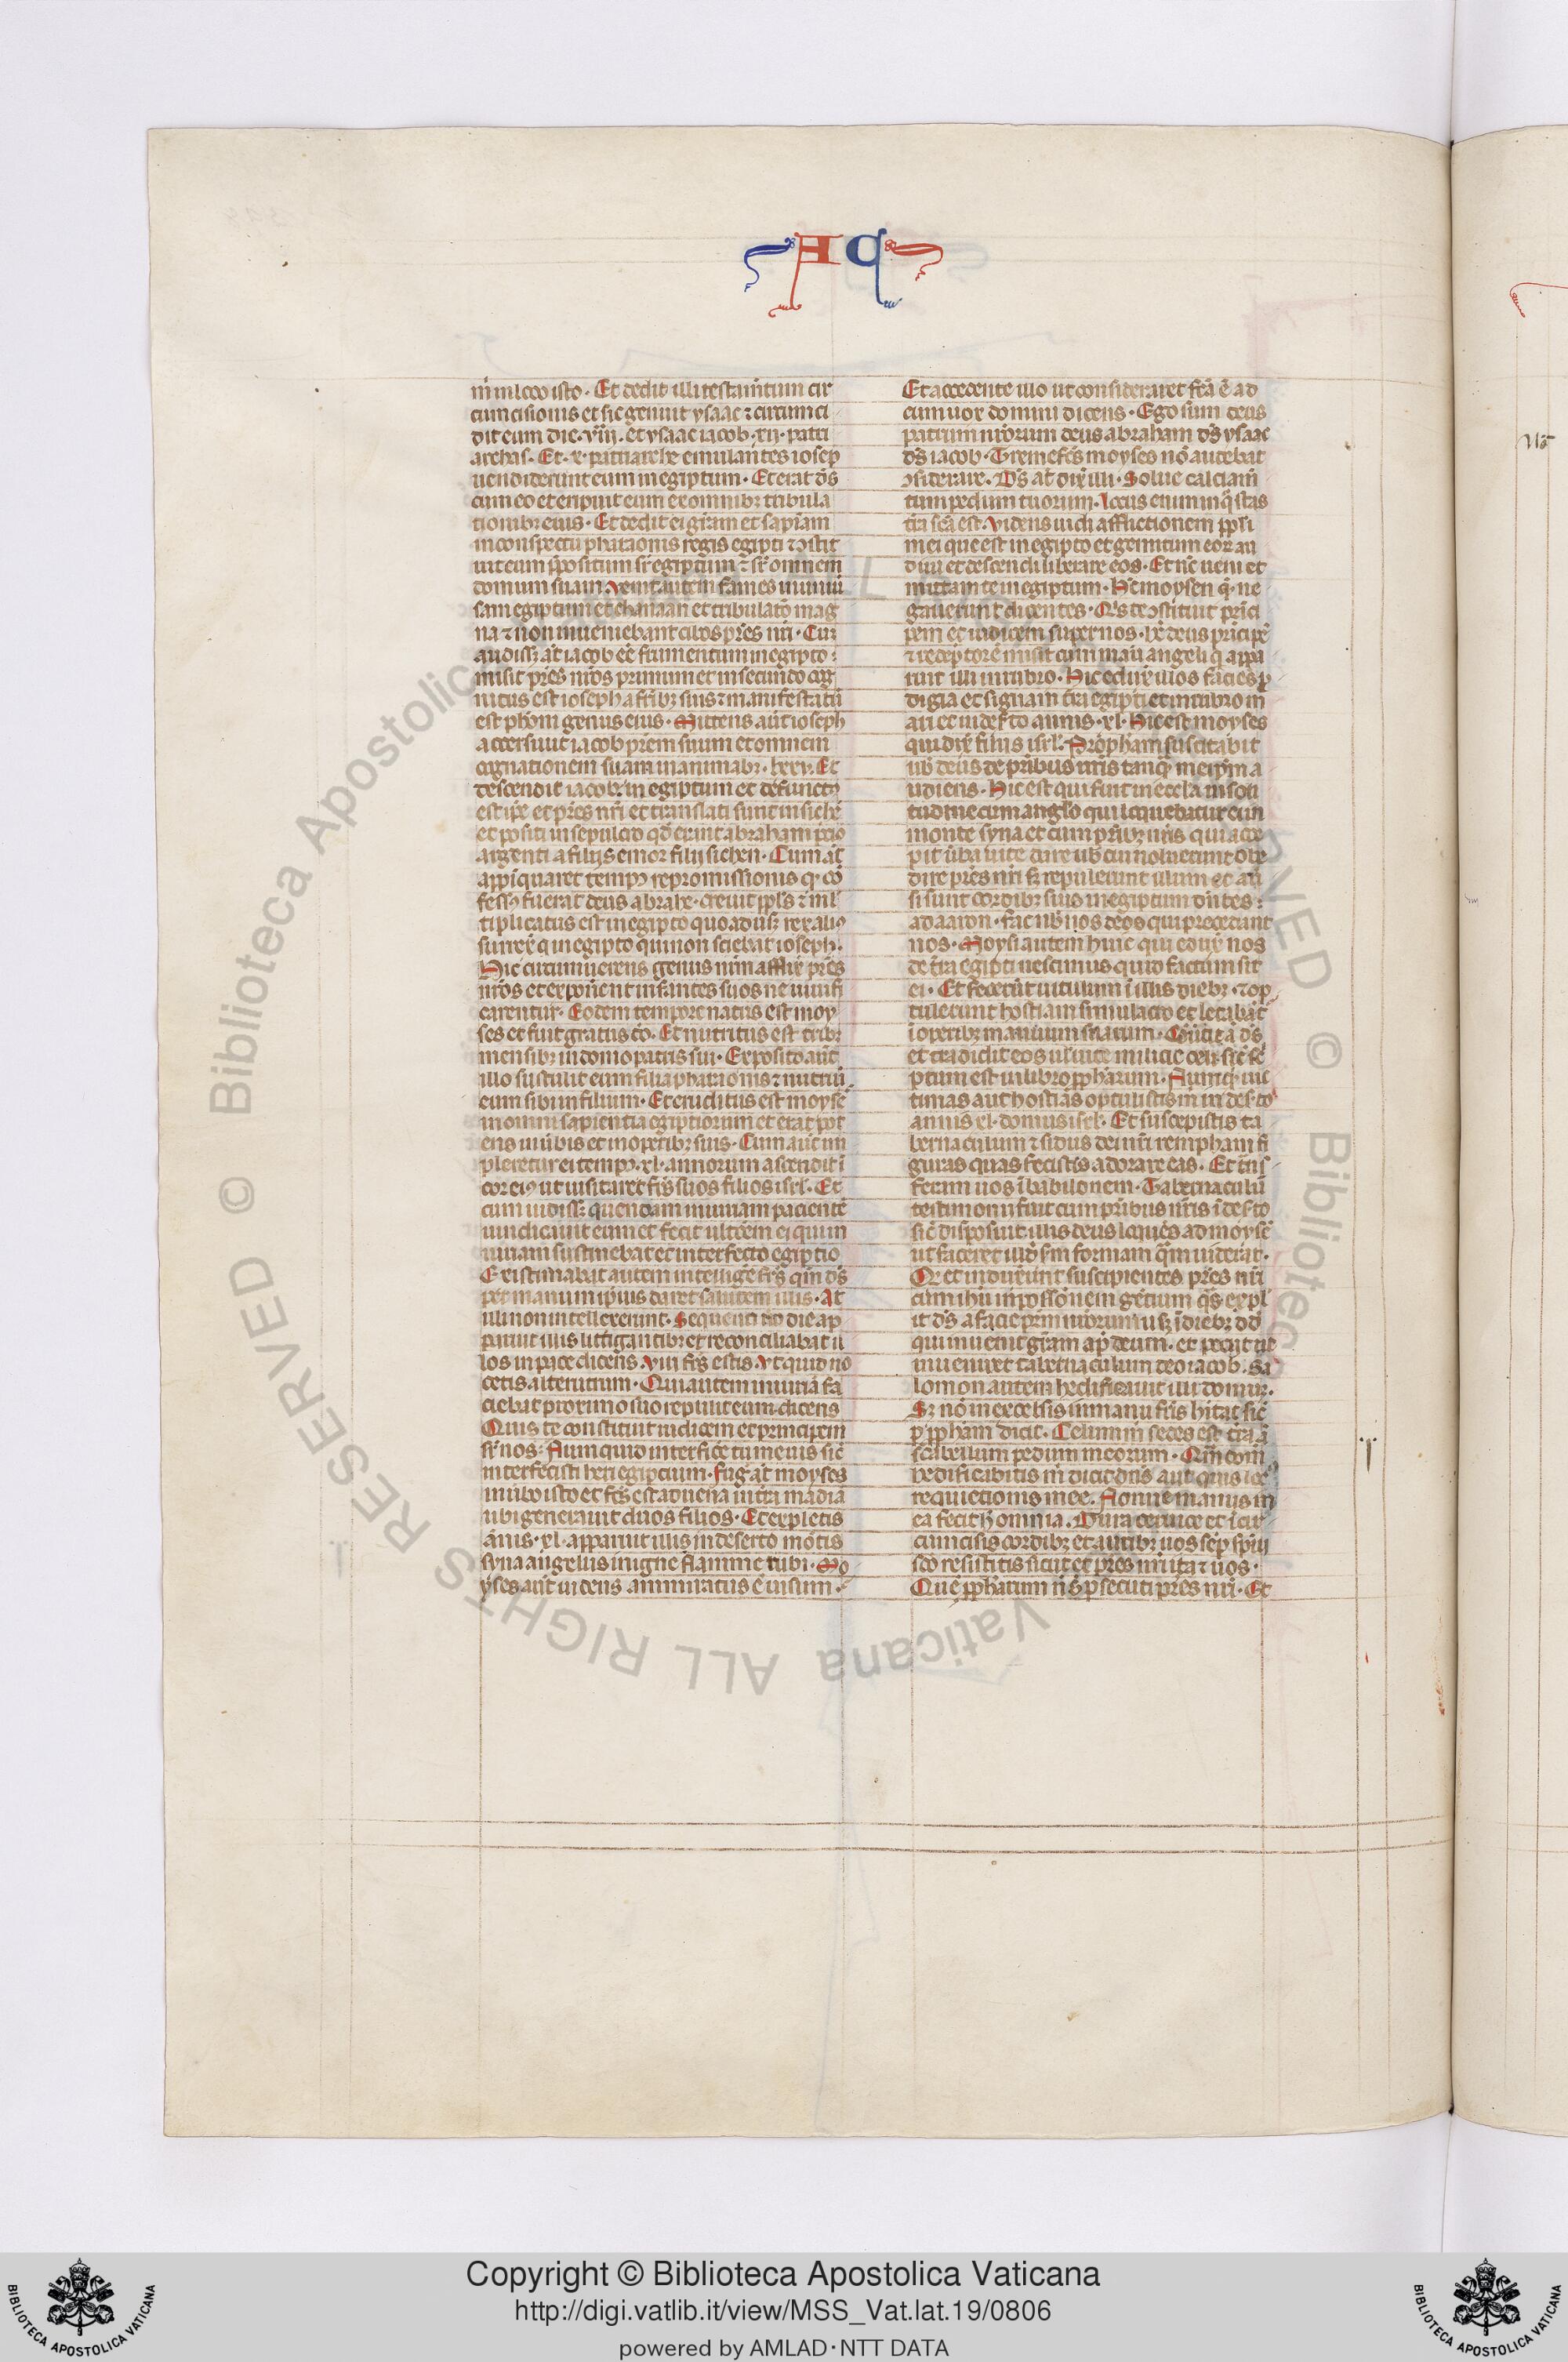 AC
mͥ in loco isto. Et dedit illi testam̄tum cir
cumcisionis et sic genuit ysaac ⁊ circumci
dit eum die. viij. et ysaac iacob. xij. patri
archas. Et. x. patriarche emulantes iosep
uendiderunt eum in egiptum. Et erat d̄s
cum eo et eripuit eum ex omnibꝫ tribula
tionibꝫ eius. Et dedit ei gr̄am et sapiam
in conspectu pharaonis regis egipti ⁊ ꝯstit
uit eum p̄positum sr̄ egiptum ⁊ sr̄ omnem
domum suam. Venit autem fames in uniuer
sam egiptum et chanaan et tribulatō mag
na ⁊ non inueniebant cibos pr̄es nr̄i. Cū
audissꝫ aūt iacob eē frumentum in egipto:
misit pr̄es nr̄os primum et in secundo cog
nitus est ioseph a fr̄ibꝫ suis ⁊ manifestatū
est phōni genus eius. Mittens aūt ioseph
accersiuit iacob pr̄em suum et omnem
cognationem suam in animabꝫ. lxxv. Et
descendit iacob in egiptum et defunctꝰ
est ip̄e et pr̄es nr̄i et translati sunt in sichē
et positi in sepulcro qd̄ emit abraham p̄cio
argenti a filijs emor filij sichen. Cum aūt
appīquaret tempꝰ repromissionis qͣ. cō
fessꝰ fuerat deus abrahe. creuit ppl̄s ⁊ ml̄
tiplicatus est in egipto quoadusꝫ rex aliꝰ
surrex̄ q in egipto qui non sciebat ioseph.
Hic circumueniens genus nr̄m afflix̄ pr̄es
nr̄os et exponent infantes suos ne uiuifi
carentur. Eodem tempore natus est moy
ses et fuit gratus dō. Et nutritus est tribꝫ
mensibꝫ in domo patris sui. Exposito aūt
illo sustulit eum filia pharaonis ⁊ nutriuit
eum sibi in filium. Et eruditus est moyses
in omni sapientia egiptiorum et erat pot
ens in ūbis et in operibꝫ suis. Cum aūt im
pleretur ei tempꝰ. xl. annorum ascendit ī
cor eiꝰ ut uisitaret fr̄s suos filios isrl̄. Et
cum uidissꝫ quendam iniuriam pacientē
uindicauit eum et fecit ultōem ei qui in
iuriam sustinebat et interfecto egiptio
Existimabat autem intelligē fr̄s qm̄ d̄s
per manum ipsius daret salutem illis. At
illi non intellexerunt. Sequenti ūo die ap
paruit illis litigantibꝫ et reconciliabat il
los in pace dicens. Viri fr̄s estis. Vt quid no
cetis alterutrum. Qui autem iniuriā fa
ciebat proximo suo repulit eum dicens
Quis te constituit iudicem et principem
sr̄ nos: Numquid interficē tu me uis sic̄
interfecisti heri egiptium. Fuḡ aūt moyses
in ūbo isto et fc̄s est aduena in tr̄a madiā
ubi generauit duos filios. Et expletis
annis. xl. apparuit illis in deserto mōtis
syna angelus in igne flamme rubi. Mo
yses aūt uidens ammiratus ē uisum.
Et accedente illo ut consideraret fc̄a ē ad
eum uox domini dicens. Ego sum deus
patrum nr̄orum deus abraham d̄s ysaac
d̄s iacob. Tremefc̄s moyses nō audebat
ꝯsiderare. D̄s aūt dix̄ illi. Solue calciam̄
tum pedum tuorum. Locus enim in q̄ stas
tr̄a sc̄a est. Videns uidi afflictionem ppl̄i
mei que est in egipto et gemitum eoꝝ au
diui et descendi liberare eos. Et nc̄ ueni et
mittam te in egiptum. Hc̄ moysen q̄. ne
gauerunt dicentes. Qͥs te ꝯstituit prīci
pem et iudicem super nos. hc̄ deus prīcipē
⁊ receptorē misit cum manu angeli q appa
ruit illi in rubro. Hic edux̄ illos faciēs ꝓ
digia et signa in tr̄a egipti et in rubro m
ari et in des̄to annis. xl. Hic est moyses
qui dix̄ filijs isrl̄. Proph̄am suscitabit
uob̄ deus de fr̄ibus ur̄is tanqͣ me ip̄m a
udiens. Hic est qui fuit in eccl̄a in soli
tudine cum anglo qui loquebatur ei in
monte syna et cum pr̄ibꝫ nr̄is qui acce
pit ūba uite dare nob̄ cui noluerunt obe
dire pr̄es nr̄i sꝫ repulerunt illum et au
si sunt cordibꝫ suis in egiptum dn̄tes:
ad aaron. fac nob̄ nos deos qui precedant
nos. Moysi autem huic qui edux̄ nos
de tr̄a egipti nescimus quid factum sit
ei. Et fecer̄t uitulum ī illis diebꝫ. ⁊ op
tulerunt hostiam simulacro et letabāt
ī operibꝫ manuum suarum. Cōuertit ā d̄s
et tradidit eos seruire milicie celi. sic̄ sc̄
ptum est in libro ꝓph̄arum. Numqͥ uic
timas aut hostias optulistis m in des̄to
annis xl. domus isrl̄. Et suscepistis ta
bernaculum ⁊ sidus dei uri rempham fi
guras quas fecistis adorare eas. Et trās
feram uos ī babilonem. Tabernaculū
testimonii fuit cum pr̄ibus nr̄is ī des̄to
sic̄ disposuit illis deus loquēs ad moysē
ut faceret illd̄ sm̄ formam qͣm uiderat.
Qd̄ et induxer̄nt suscipientes pr̄es nr̄i
cum ih̄u in possōnem gētium qͣs expl̄
it d̄s a facie pr̄m nr̄orum usꝫ ī diebꝫ dd̄
qui inuenit gr̄am ap̄ deum. et petijt ut
inueniret tabernaculum deo iacob. Sa
lomon autem hedificauit illi domum.
Sꝫ nō in excelsis in manu fc̄is hītat sic̄
ꝑ ꝓph̄am dicit. Celum m̄ sedes est tr̄a ā
scabellum pedum meorum. Qͣm domū
hedificabitis m̄ dicit dn̄s aut quis loc̄
requietionis mee. Nonne manus m
ea fecit h̄ omnia. Dura ceruice et ī cir
cuncisis cordibꝫ et auribꝫ uos semp̄ spūi
sc̄o resistitis sicut et pr̄es ur̄i ita ⁊ uos.
Quē ꝓph̄arum n̄ s̄ ꝑsecuti pr̄es ur̄i. Et
Copyright © Biblioteca Apostolica Vaticana
http://digi.vatlib.it/view/MSS_Vat.lat.19/0806
powered by AMLAD · NTT DATA
BIBLIOTECA APOSTOLICA VATICANA
BIBLIOTECA APOSTOLICA VATICANA
© Biblioteca Apostolica Vaticana ALL RIGHTS RESERVED © Biblioteca Apostolica Vaticana ALL RIGHTS RESERVED